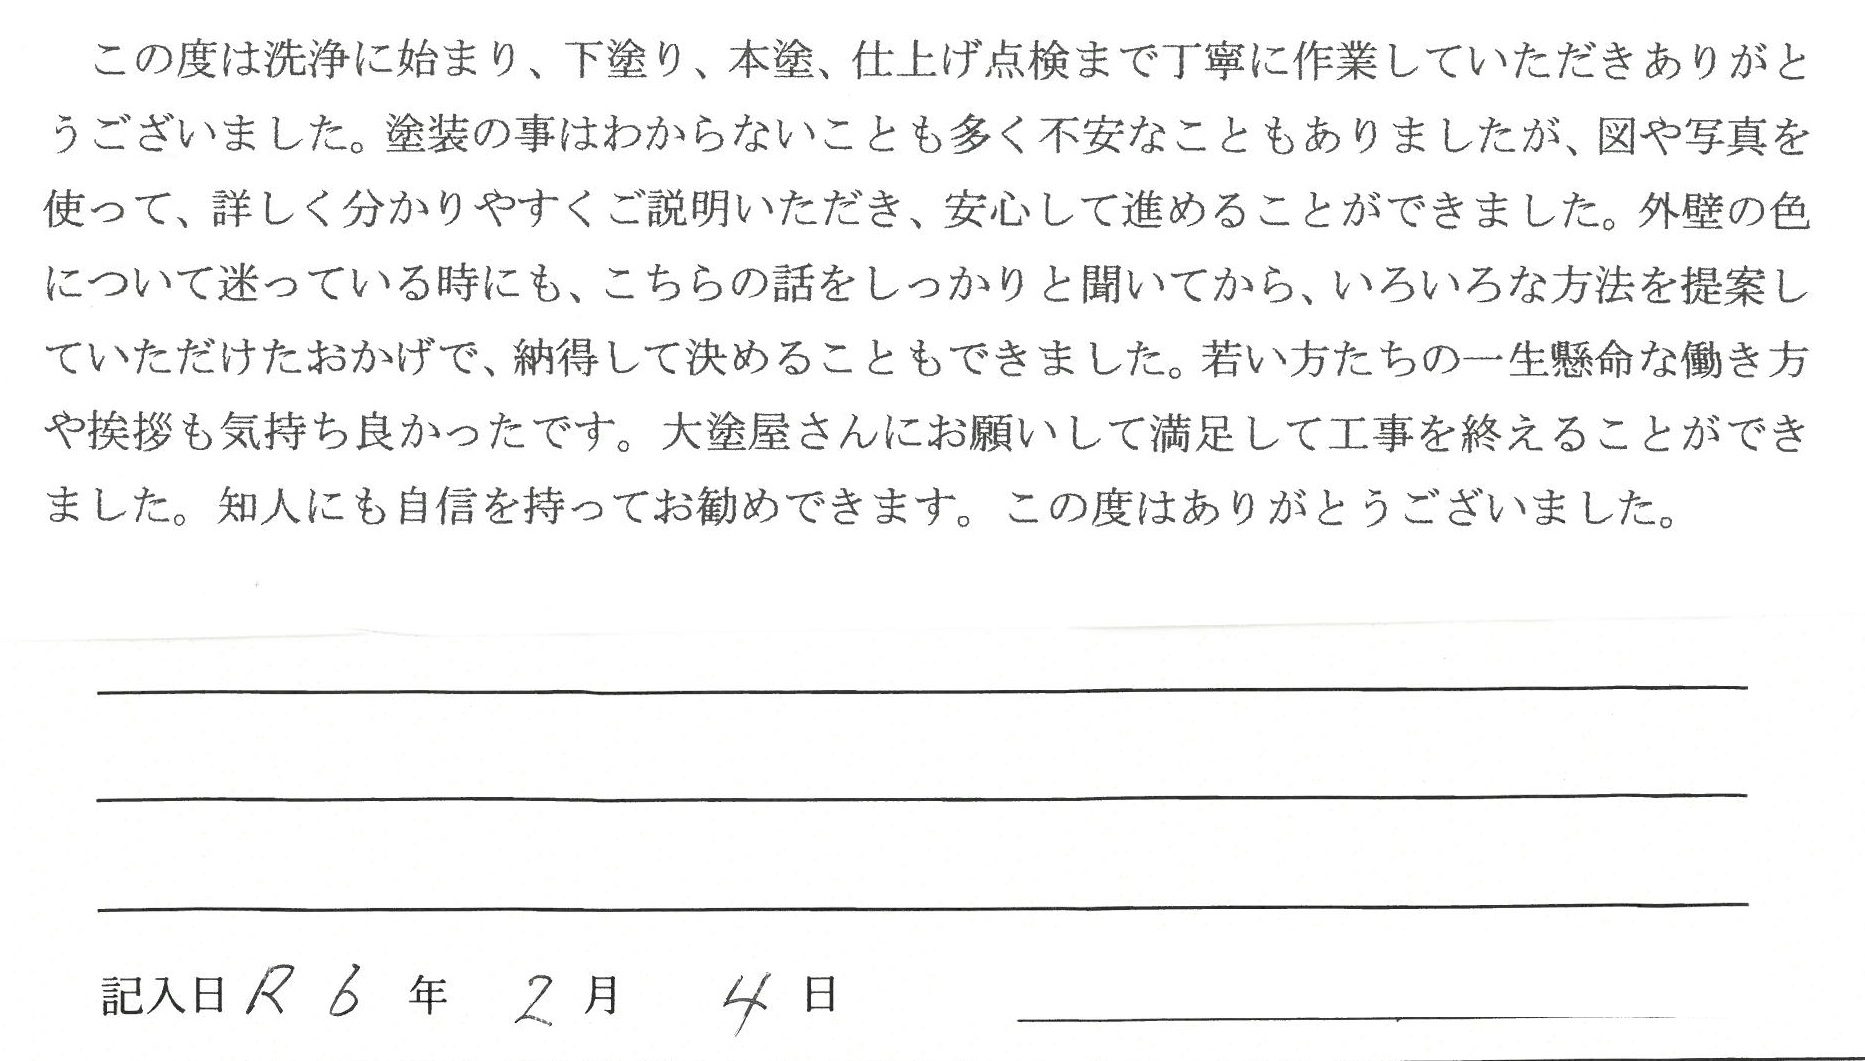 この度は洗浄に始まり、下塗り、本塗、仕上げ点検まで丁寧に作業していただきありがと
うございました。塗装の事はわからないことも多く不安なこともありましたが、図や写真を
使って、詳しく分かりやすくご説明いただき、安心して進めることができました。外壁の色
について迷っている時にも、こちらの話をしっかりと聞いてから、いろいろな方法を提案し
ていただけたおかげで、納得して決めることもできました。若い方たちの一生懸命な働き方
や挨拶も気持ち良かったです。大塗屋さんにお願いして満足して工事を終えることができ
ました。知人にも自信を持ってお勧めできます。この度はありがとうございました。
記入日 R 6 年 2 月 4 日